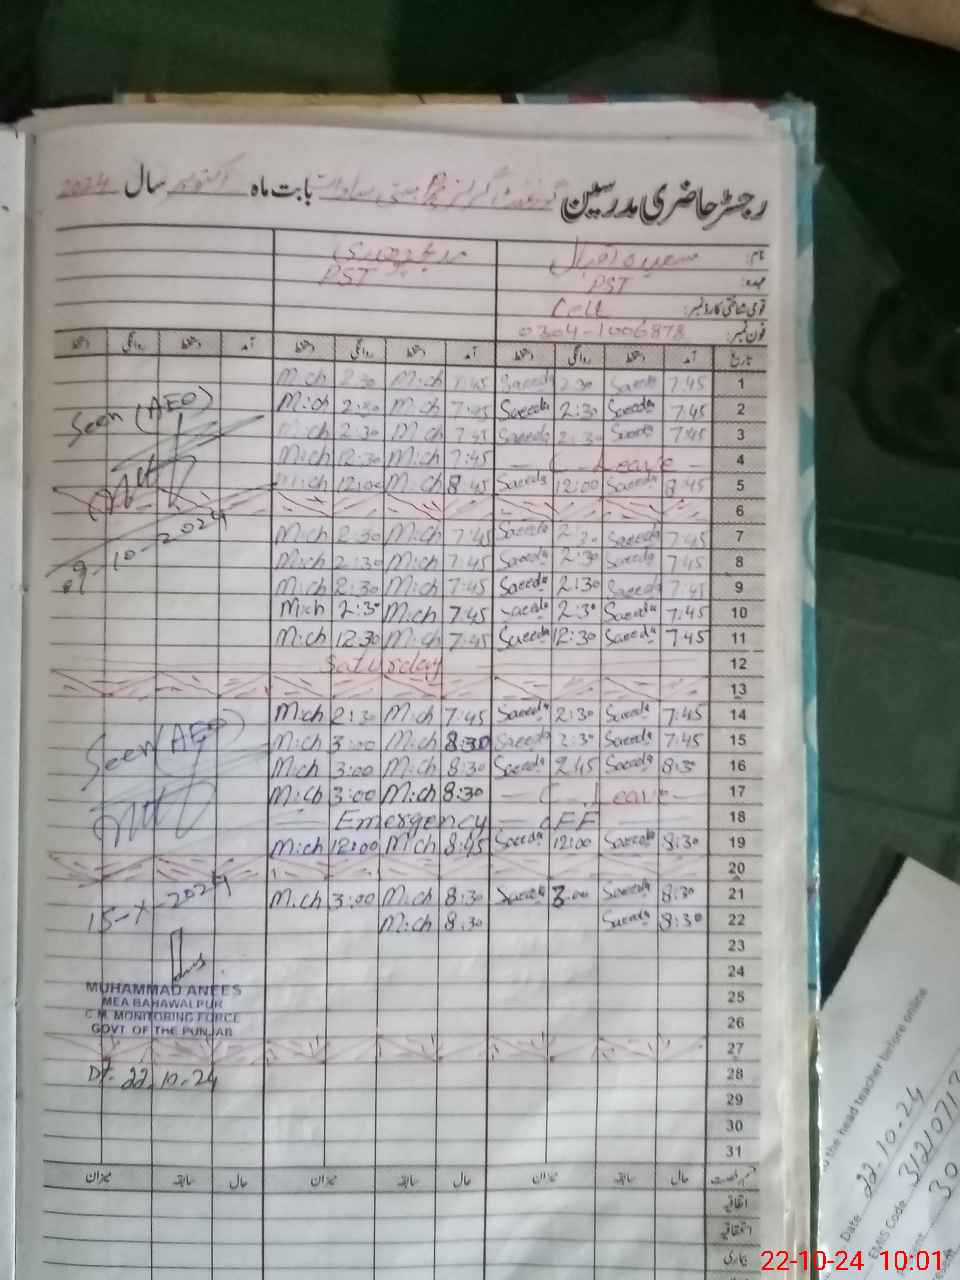 رجسٹر حاضری مدرسین گورنمنٹ گرلز بستی بابت ماہ اکتوبر سال 2024
نام: سعیدہ اقبال
عہدہ: PST PST
قومی شناختی کارڈ نمبر: Cell
فون نمبر: 0304-1006878
تاریخ آمد دستخط روانگی دستخط آمد دستخط روانگی دستخط آمد دستخط روانگی دستخط
1 7:45 Saeeda 2:30 Saeeda 7:45 M:ch 2:30 M:ch
2 7:45 Saeeda 2:30 Saeeda 7:45 M:ch 2:30 M:ch
3 7:45 Saeeda 2:30 Saeeda 7:45 M:ch 2:30 M:ch
4 — C Leave — 7:45 M:ch 12:30 M:ch
5 8:45 Saeeda 12:00 Saeeda 8:45 M:ch 12:00 M:ch
6
7 7:45 Saeeda 2:30 Saeeda 7:45 M:ch 2:30 M:ch
8 7:45 Saeeda 2:30 Saeeda 7:45 M:ch 2:30 M:ch
9 7:45 Saeeda 2:30 Saeeda 7:45 M:ch 2:30 M:ch
10 7:45 Saeeda 2:30 Saeeda 7:45 M:ch 2:30 M:ch
11 7:45 Saeeda 12:30 Saeeda 7:45 M:ch 12:30 M:ch
12 Saturday
13
14 7:45 Saeeda 2:30 Saeeda 7:45 M:ch 2:30 M:ch
15 7:45 Saeeda 2:30 Saeeda 8:30 M:ch 3:00 M:ch
16 8:30 Saeeda 2:45 Saeeda 8:30 M:ch 3:00 M:ch
17 — C Leave — 8:30 M:ch 3:00 M:ch
18 — Emergency — oFF —
19 8:30 Saeeda 12:00 Saeeda 8:45 M:ch 12:00 M:ch
20
21 8:30 Saeeda 3:00 Saeeda 8:30 M:ch 3:00 M:ch
22 8:30 Saeeda 8:30 M:ch
23
24
25
26
27
28
29
30
31
حال سابقہ میزان حال سابقہ میزان حال سابقہ میزان
اتفاقیہ
استحقاقیہ
بیماری
Seen (AEO)
09-10-2024
Seen (AEO)
15-X-2024
MUHAMMAD ANEES
MEA BAHAWALPUR
C.M. MONITORING FORCE
GOVT OF THE PUNJAB
Dt. 22.10.24
the head teacher before online
Date 22-10-24
EMIS Code 3121071
30
22-10-24 10:01